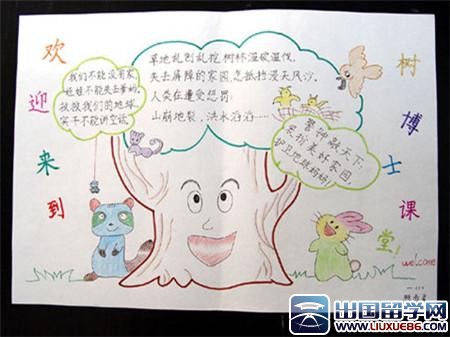 欢迎来到
树博士课堂！
welcome
草地乱刨乱挖，树林滥砍滥伐，
失去屏障的家园，怎抵挡漫天风沙，
人类在遭受惩罚：
山崩地裂，洪水滔滔……
我们不能没有家，
娃娃不能失去爹妈，
救救我们的地球，
实干不能讲空话。
警钟敲天下：
爱惜美好家园，
护卫地球妈妈！
出国留学网
WWW.LIUXUE86.COM